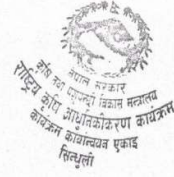 नेपाल सरकार
कृषि तथा पशुपन्छी विकास मन्त्रालय
राष्ट्रिय कृषि आधुनिकीकरण कार्यक्रम
कार्यक्रम कार्यान्वयन एकाई
सिन्धुली